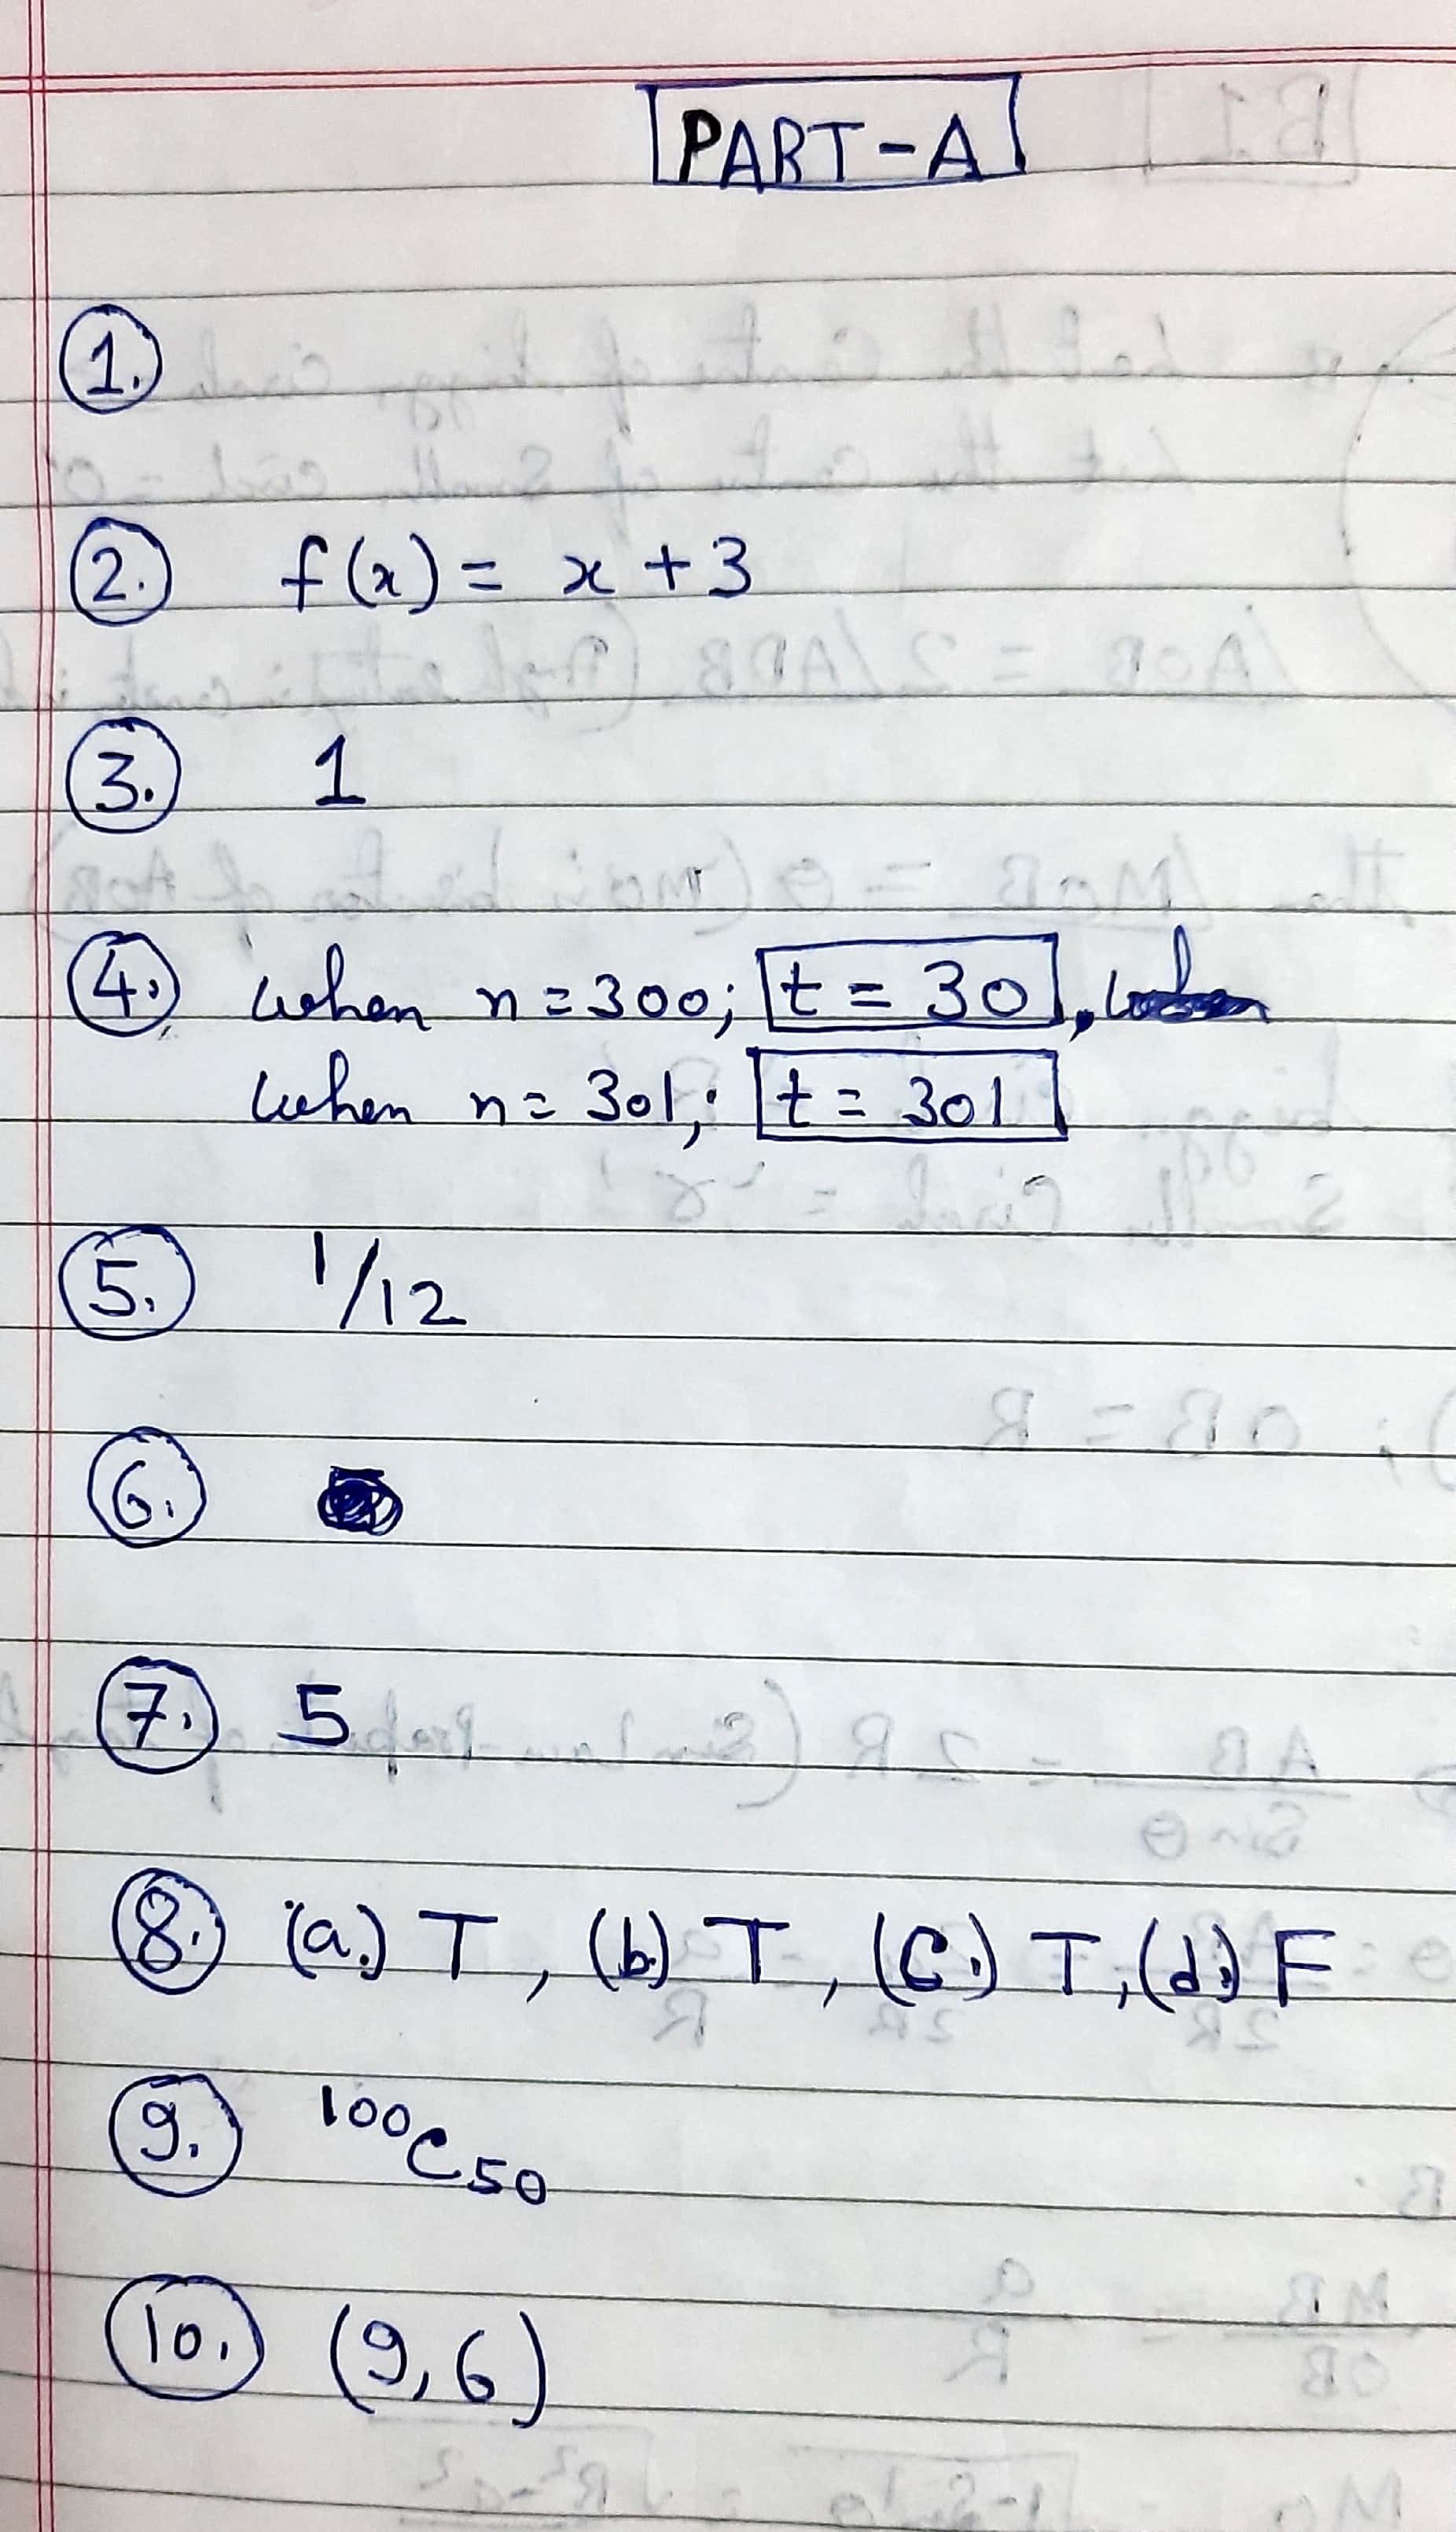 PART-A
1.
2. f(x) = x + 3
3. 1
4. when n = 300; t = 30,
when n = 301; t = 301
5. 1/12
6.
7. 5
8. (a.) T, (b) T, (C.) T, (d.) F
9. ¹⁰⁰C₅₀
10. (9, 6)